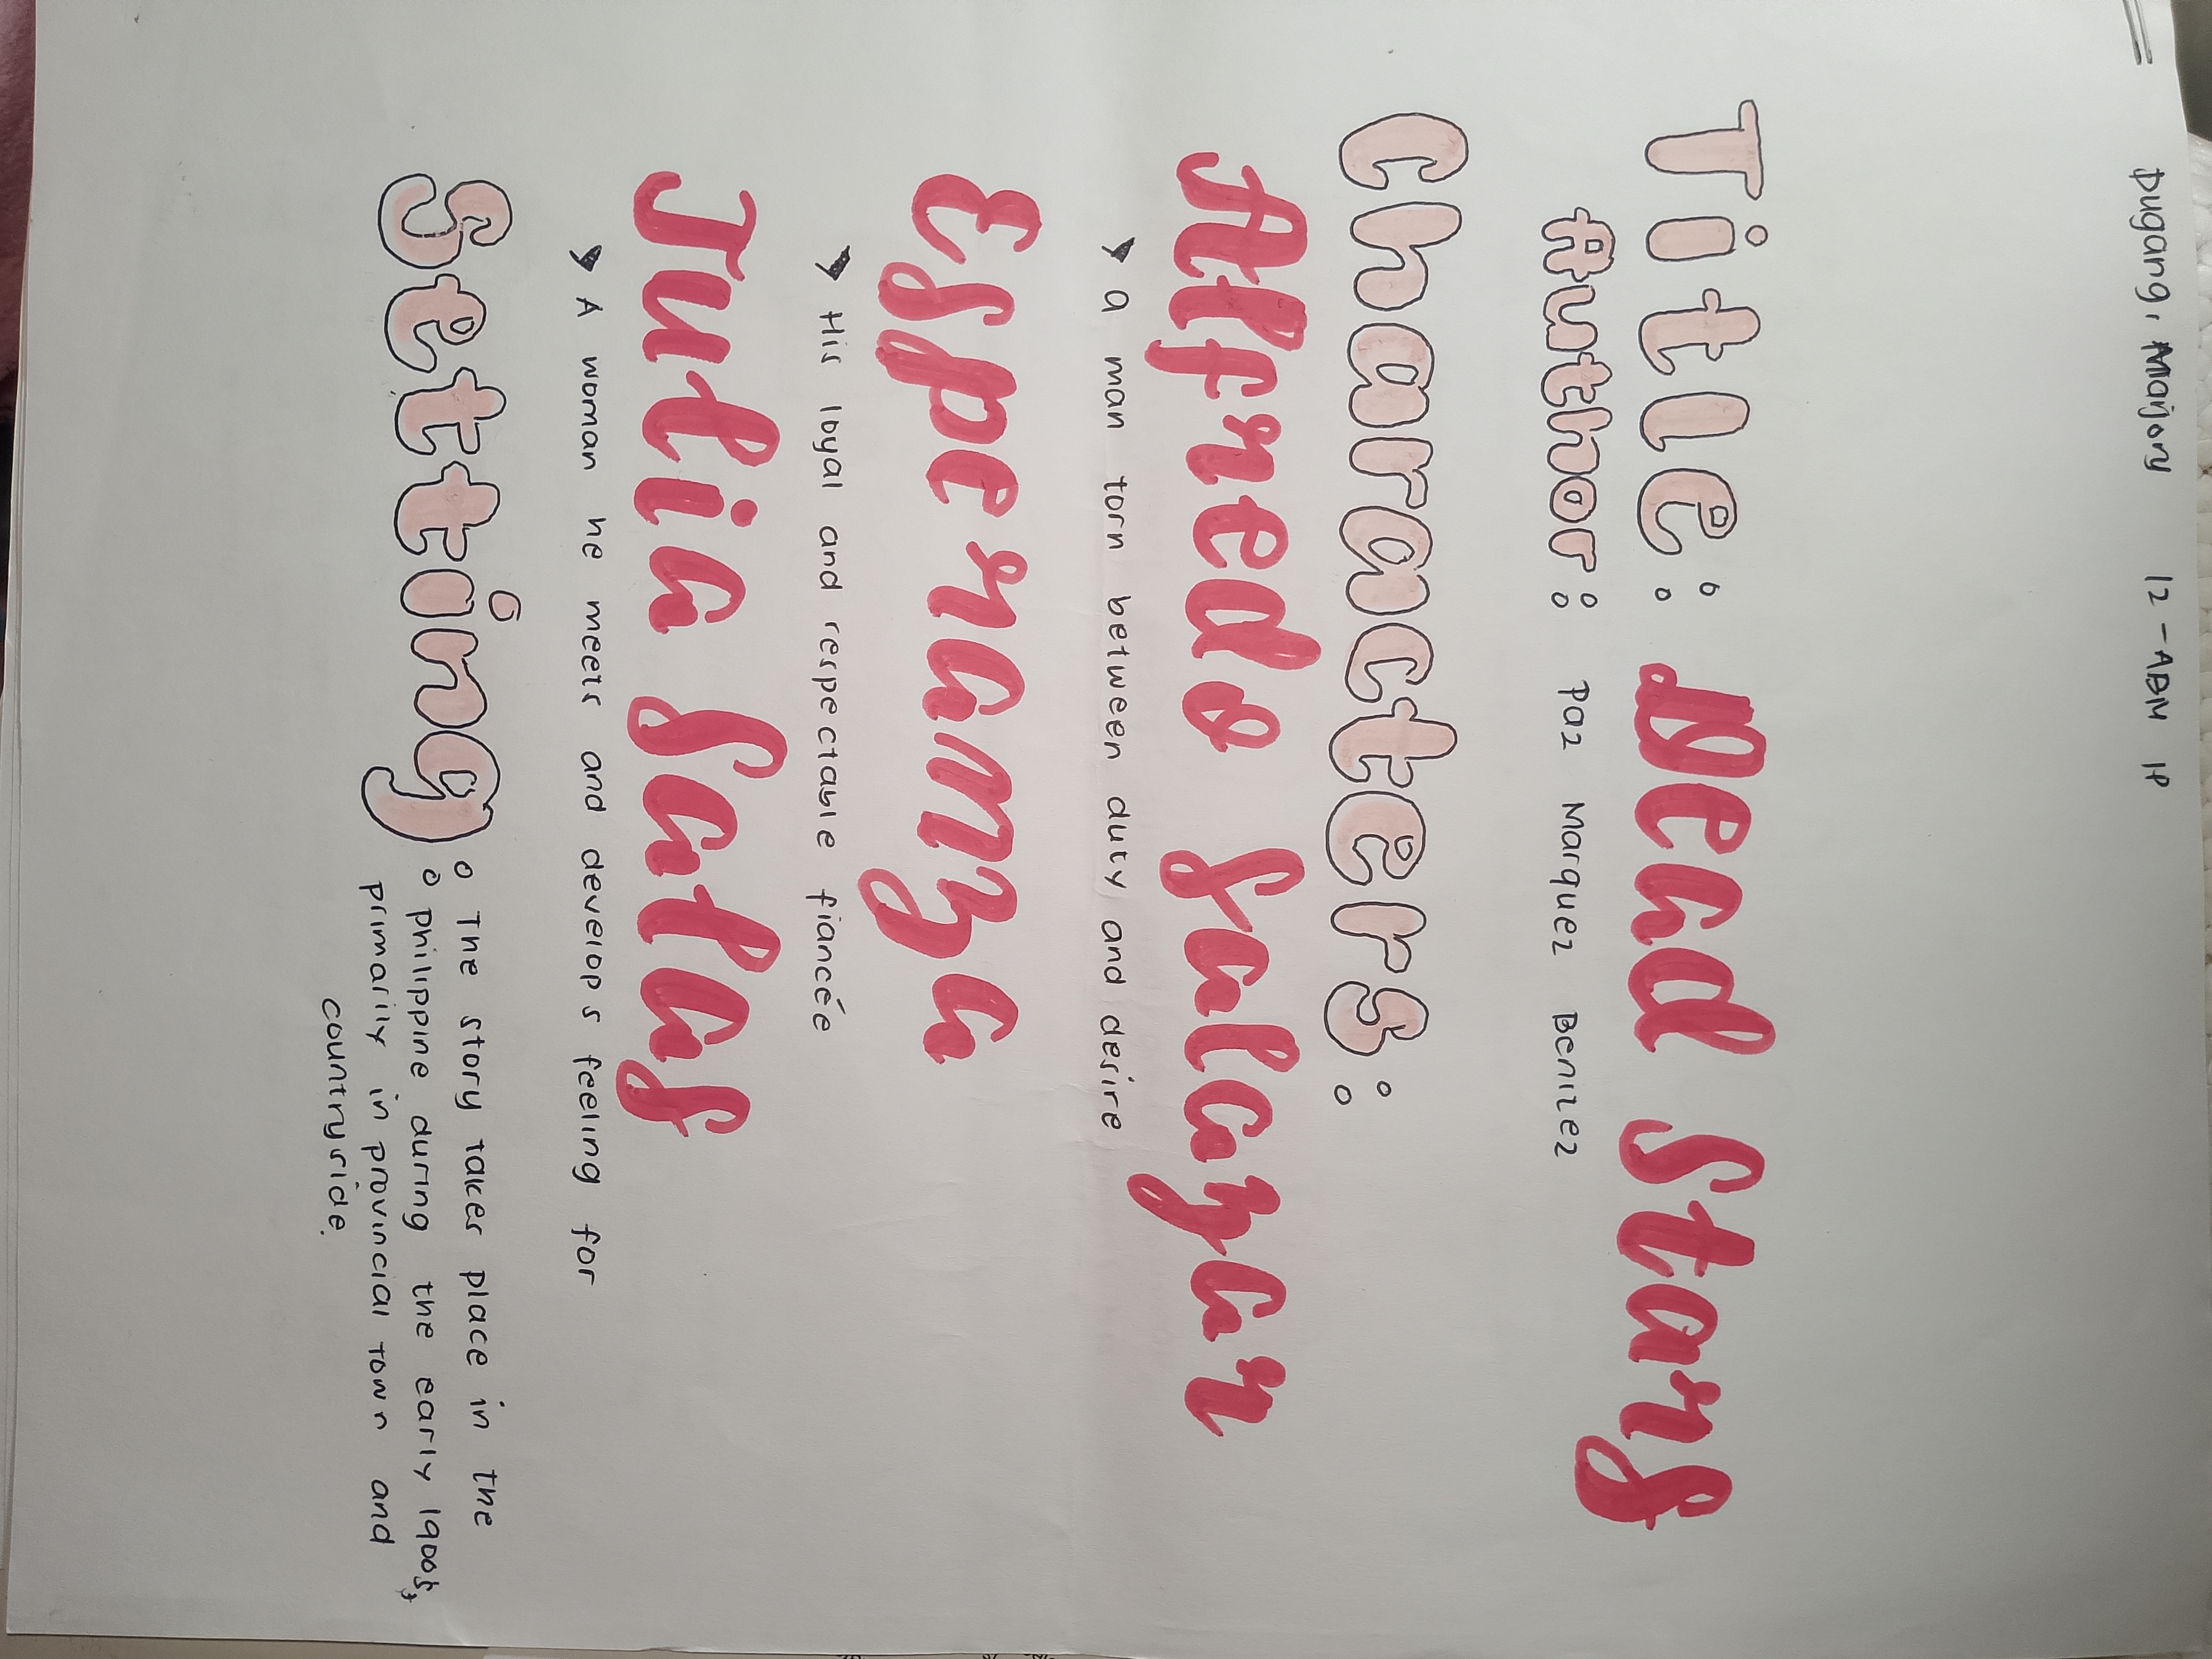 Dugang, Marjory 12-ABM 1P
Title: Dead Stars
Author: Paz Marquez Benitez
Characters:
Alfredo Salazar
a man torn between duty and desire
Esperanza
His loyal and respectable fiancée
Julia Salas
A woman he meets and develops feeling for
Setting: The story takes place in the
philippine during the early 1900s,
primarily in provincial town and
countryside.